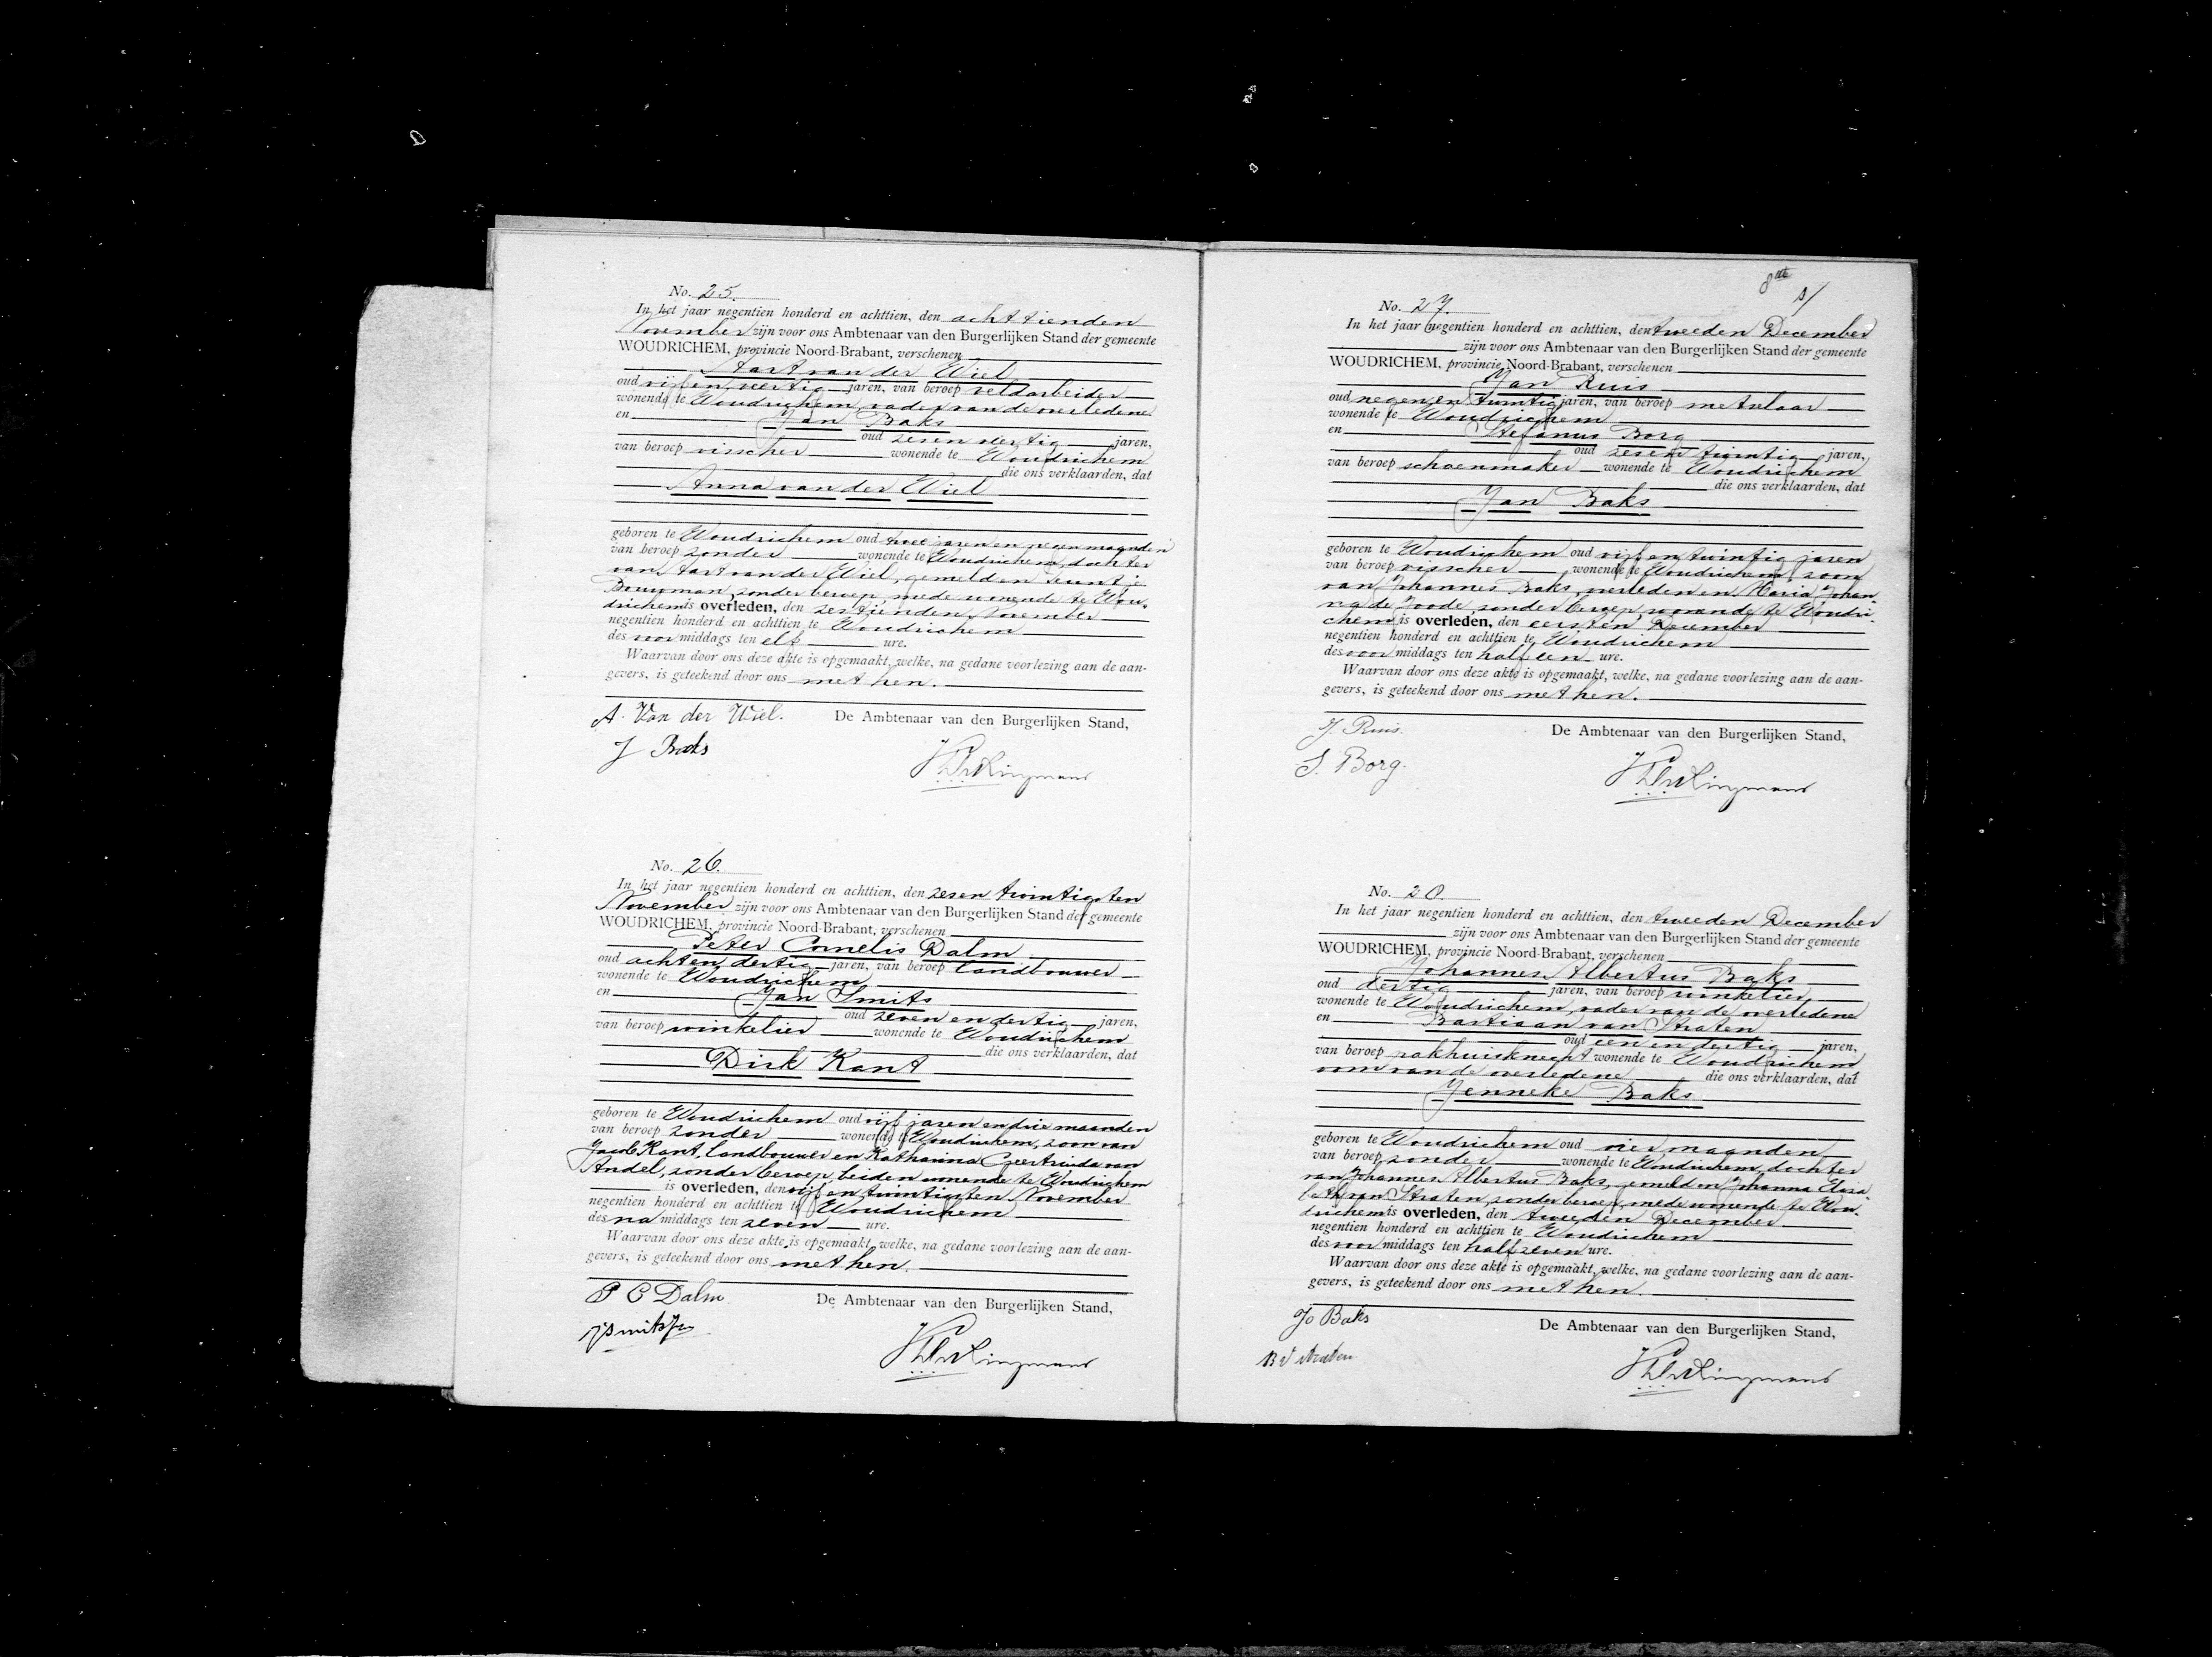 No. 25.
In het jaar negentien honderd en achttien, den achttienden
November zijn voor ons Ambtenaar van den Burgerlijken Stand der gemeente
WOUDRICHEM, provincie Noord-Brabant, verschenen
Aart van der Wiel
oud vijf en veertig jaren, van beroep veldarbeider
wonende te Woudrichem, vader van de overledene
en Jan Baks
oud zes en veertig jaren,
van beroep visscher wonende te Woudrichem
die ons verklaarden, dat
Anna van der Wiel
geboren te Woudrichem oud twee jaren en negen maanden
van beroep zonder wonende te Woudrichem, dochter
van Aart van der Wiel, gemeld en Teuntje
Bouwman, zonder beroep, mede wonende te Wou-
drichem is overleden, den zestienden November
negentien honderd en achttien te Woudrichem
des voor middags ten elf ure.
Waarvan door ons deze akte is opgemaakt, welke, na gedane voorlezing aan de aan-
gevers, is geteekend door ons met hen.
A. Van der Wiel. De Ambtenaar van den Burgerlijken Stand,
J Baks
No. 26.
In het jaar negentien honderd en achttien, den zes en twintigsten
November zijn voor ons Ambtenaar van den Burgerlijken Stand der gemeente
WOUDRICHEM, provincie Noord-Brabant, verschenen
Peter Cornelis Dalm
oud acht en dertig jaren, van beroep landbouwer
wonende te Woudrichem
en Jan Smits
oud zeven en dertig jaren,
van beroep winkelier wonende te Woudrichem
die ons verklaarden, dat
Dirk Kant
geboren te Woudrichem oud vijf jaren en drie maanden
van beroep zonder wonende te Woudrichem, zoon van
Jacob Kant, landbouwer en Katharina Geertruida van
Andel, zonder beroep, beiden wonende te Woudrichem
is overleden, den vijf en twintigsten November
negentien honderd en achttien te Woudrichem
des na middags ten zeven ure.
Waarvan door ons deze akte is opgemaakt, welke, na gedane voorlezing aan de aan-
gevers, is geteekend door ons met hen.
P C Dalm De Ambtenaar van den Burgerlijken Stand,
8ste
No. 27.
In het jaar negentien honderd en achttien, den tweeden December
zijn voor ons Ambtenaar van den Burgerlijken Stand der gemeente
WOUDRICHEM, provincie Noord-Brabant, verschenen
Jan Ruis
oud negen en twintig jaren, van beroep metselaar
wonende te Woudrichem
en Stefanus Borg
oud zes en twintig jaren,
van beroep schoenmaker wonende te Woudrichem
die ons verklaarden, dat
Jan Baks
geboren te Woudrichem oud vijf en twintig jaren
van beroep visscher wonende te Woudrichem, zoon
van Johannes Baks, overleden en Maria Johan-
na de Joode, zonder beroep, wonende te Woudri-
chem, is overleden, den eersten December
negentien honderd en achttien te Woudrichem
des voor middags ten half een ure.
Waarvan door ons deze akte is opgemaakt, welke, na gedane voorlezing aan de aan-
gevers, is geteekend door ons met hen.
J. Ruis. De Ambtenaar van den Burgerlijken Stand,
S. Borg.
No. 28.
In het jaar negentien honderd en achttien, den tweeden December
zijn voor ons Ambtenaar van den Burgerlijken Stand der gemeente
WOUDRICHEM, provincie Noord-Brabant, verschenen
Johannes Albertus Baks
oud dertig jaren, van beroep winkelier,
wonende te Woudrichem, vader van de overledene
en Bastiaan van Straten
oud een en dertig jaren,
van beroep pakhuisknecht wonende te Woudrichem
oom van de overledene die ons verklaarden, dat
Jenneke Baks
geboren te Woudrichem oud vier maanden
van beroep zonder wonende te Woudrichem, dochter
van Johannes Albertus Baks, gemeld en Johanna Elisa-
beth van Straten, zonder beroep, mede wonende te Wou-
drichem is overleden, den tweeden December
negentien honderd en achttien te Woudrichem
des voor middags ten half zeven ure.
Waarvan door ons deze akte is opgemaakt, welke, na gedane voorlezing aan de aan-
gevers, is geteekend door ons met hen.
Jo Baks De Ambtenaar van den Burgerlijken Stand,
B v Straten